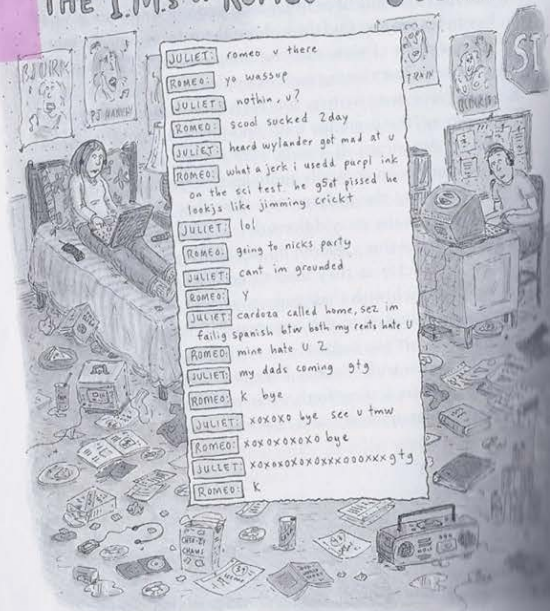 THE I.M.s
JULIET: romeo u there
ROMEO: yo wassup
JULIET: nothin, u?
ROMEO: scool sucked 2day
JULIET: heard wylander got mad at u
ROMEO: what a jerk i usedd purpl ink
on the sci test. he g5ot pissed he
lookjs like jimming crickt
JULIET: lol
ROMEO: going to nicks party
JULIET: cant im grounded
ROMEO: Y
JULIET: cardoza called home, sez im
failig spanish btw both my rents hate u
ROMEO: mine hate u 2
JULIET: my dads coming gtg
ROMEO: K bye
JULIET: xoxoxo bye see u tmw
ROMEO: xoxoxoxoxo bye
JULIET: xoxoxoxoxoxxxoooxxxgtg
ROMEO: K